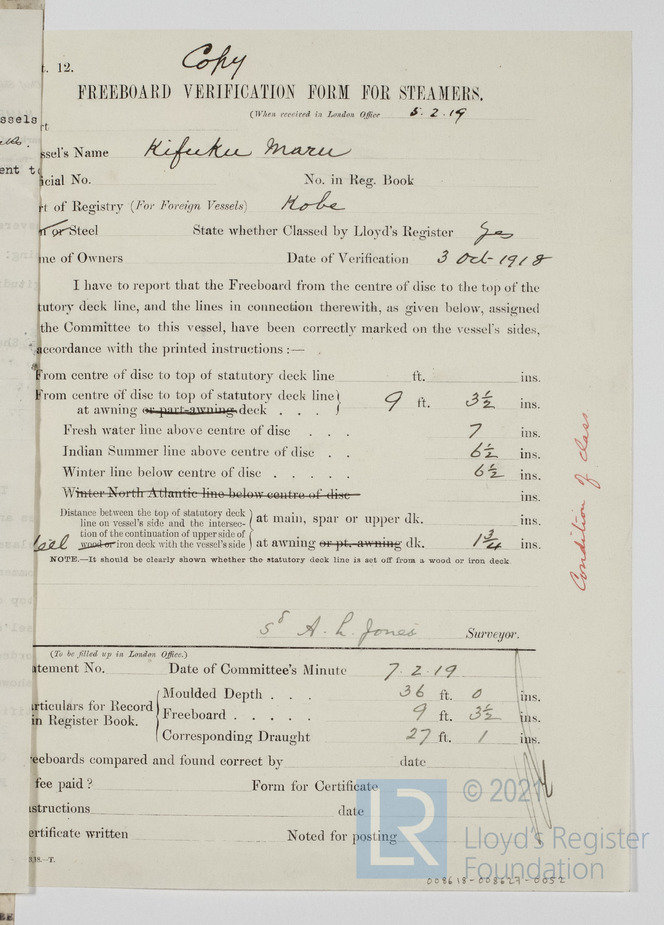 t. 12.
Copy
FREEBOARD VERIFICATION FORM FOR STEAMERS.
(When received in London Office 5.2.19
rt
ssels
ssel's Name Kifuku Maru
ent to
icial No. No. in Reg. Book
rt of Registry (For Foreign Vessels) Kobe
n or Steel State whether Classed by Lloyd's Register Yes
me of Owners Date of Verification 3 Oct 1918
I have to report that the Freeboard from the centre of disc to the top of the
tutory deck line, and the lines in connection therewith, as given below, assigned
the Committee to this vessel, have been correctly marked on the vessel's sides,
accordance with the printed instructions :—
From centre of disc to top of statutory deck line ft. ins.
From centre of disc to top of statutory deck line
at awning or part-awning deck . . . 9 ft. 3½ ins.
Fresh water line above centre of disc . . . 7 ins.
Indian Summer line above centre of disc . . 6½ ins.
Winter line below centre of disc . . . . . 6½ ins.
Winter North Atlantic line below centre of disc ins.
Distance between the top of statutory deck
line on vessel's side and the intersec-
tion of the continuation of upper side of
wood or iron deck with the vessel's side
at main, spar or upper dk. ins.
at awning or pt. awning dk. 1¾ ins.
NOTE.—It should be clearly shown whether the statutory deck line is set off from a wood or iron deck
Condition of class
sd A. L. Jones Surveyor.
(To be filled up in London Office.)
atement No. Date of Committee's Minute 7.2.19
articulars for Record
in Register Book.
Moulded Depth . . . 36 ft. 0 ins.
Freeboard . . . . . 9 ft. 3½ ins.
Corresponding Draught 27 ft. 1 ins.
reeboards compared and found correct by date
fee paid ? Form for Certificate
structions date
ertificate written Noted for posting
3,18.—T.
LR
© 2021
Lloyd's Register
Foundation
008618-008627-0052